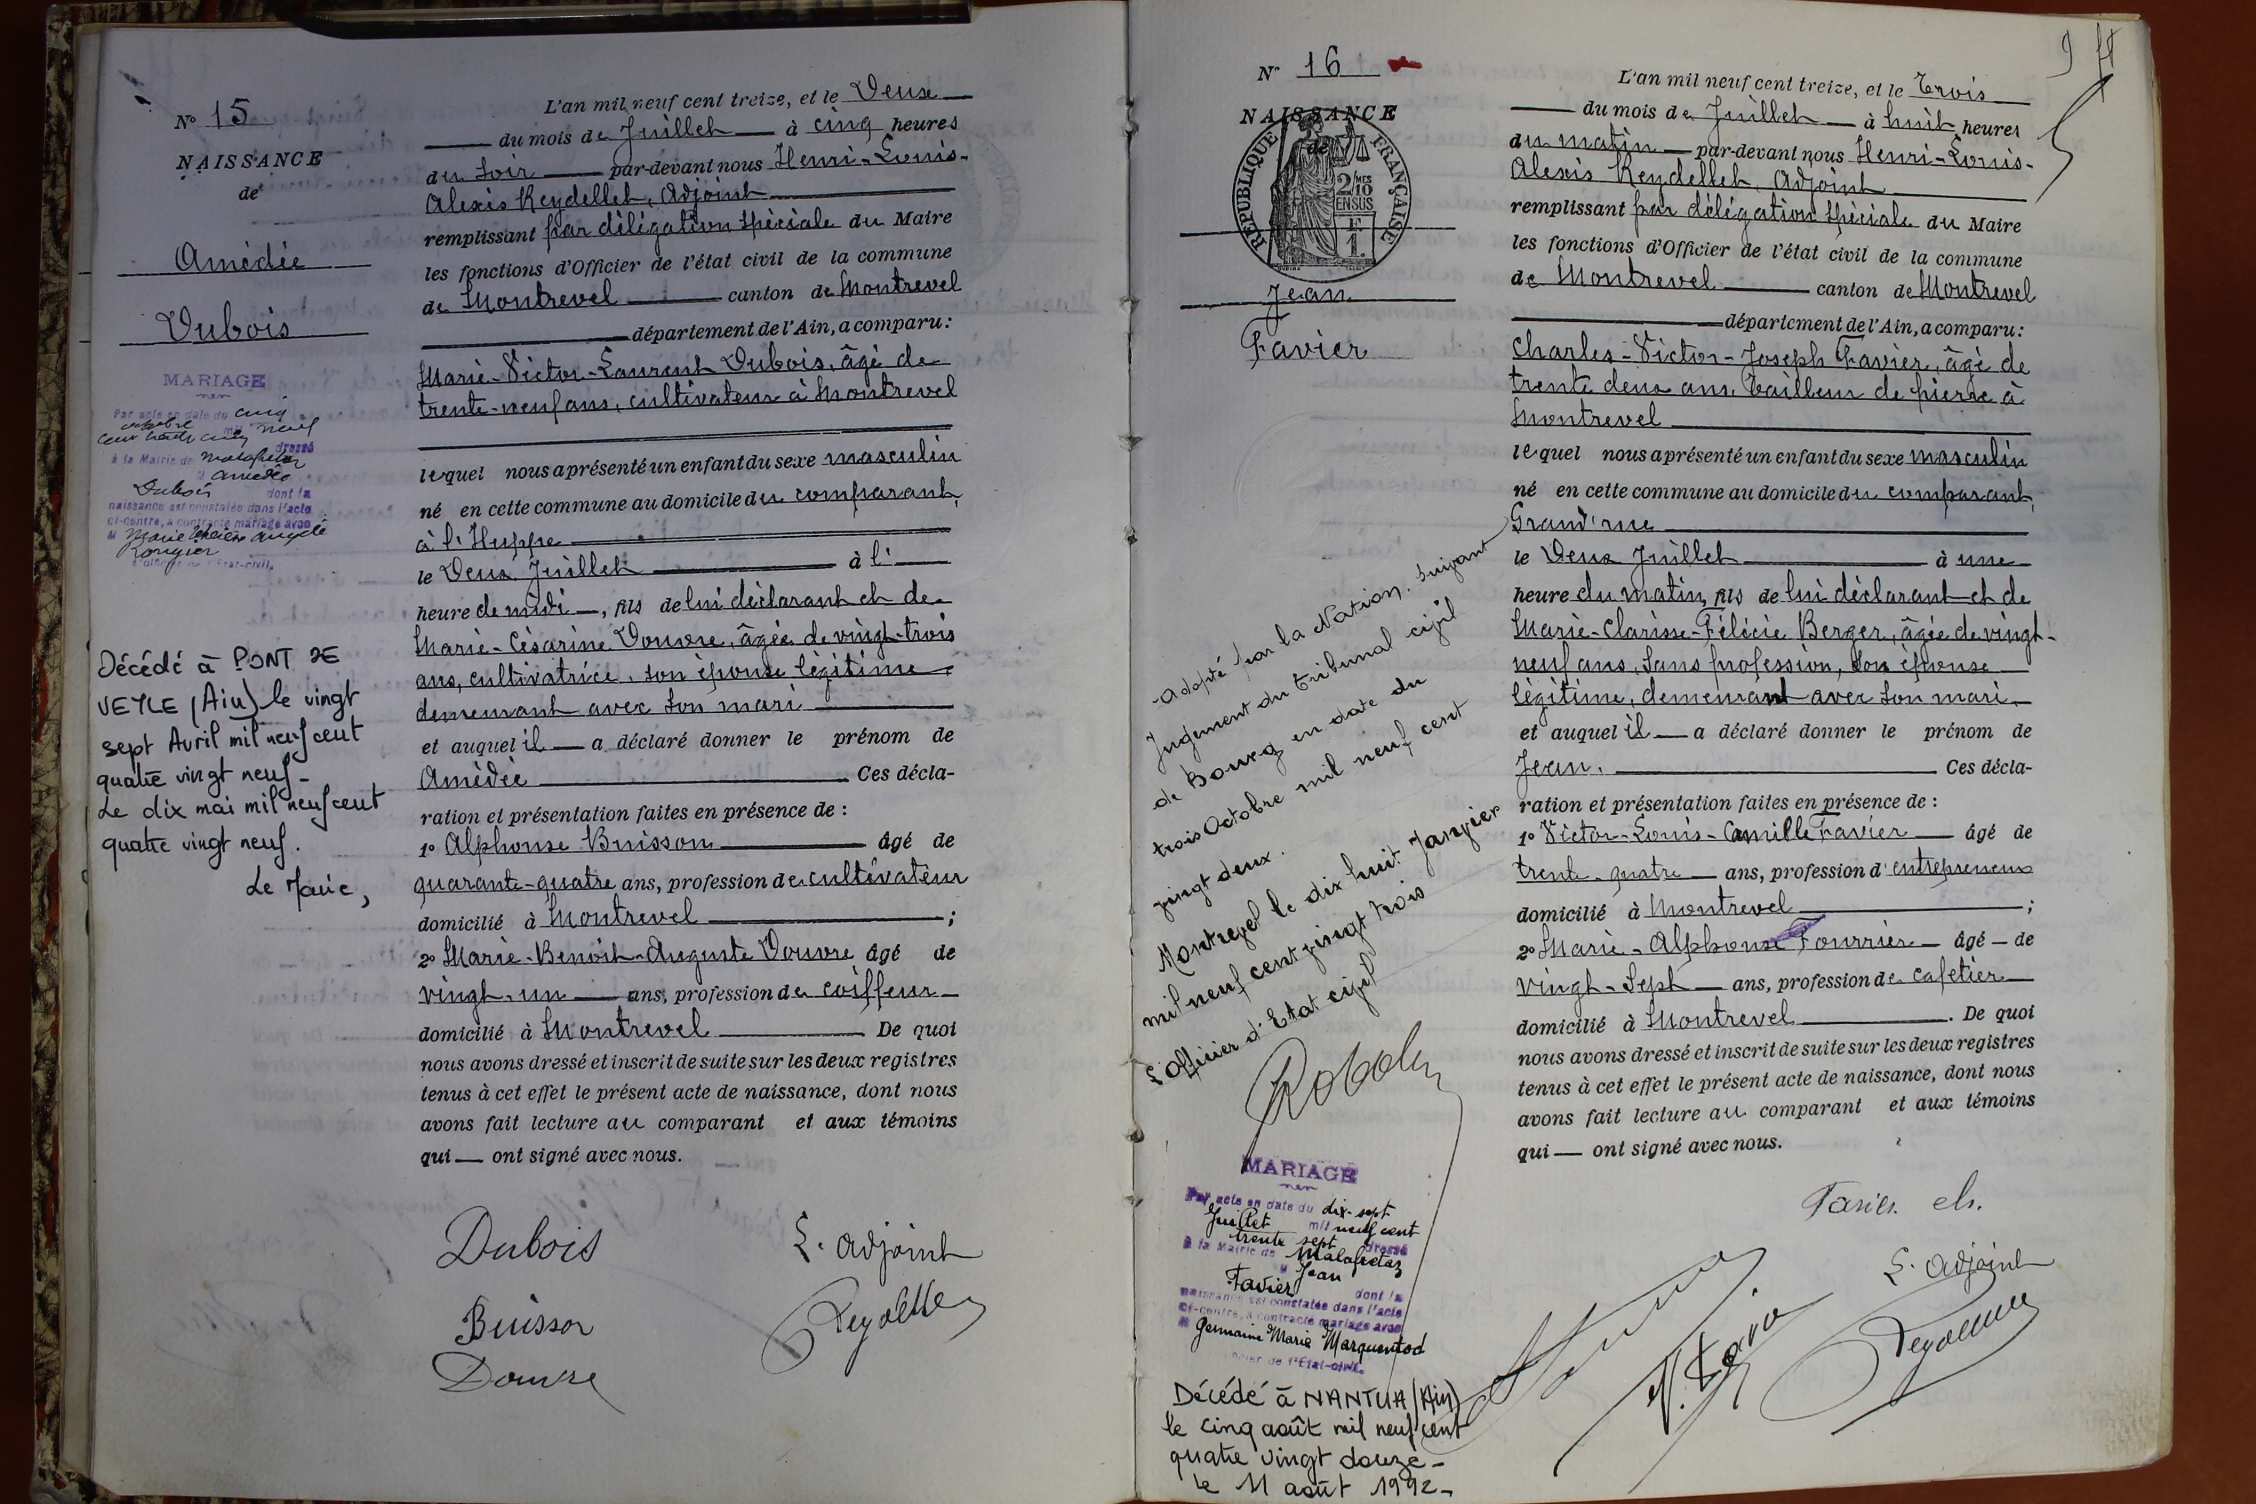 N° 15
NAISSANCE
de
Amédée
Dubois
MARIAGE
Par acte en date du cinq
octobre mil neuf
cent trente cinq dressé
à la Mairie de Malafretaz
Amédée
Dubois dont la
naissance est constatée dans l'acte
ci-contre, a contracté mariage avec
Marie Angèle
Rongier
l'Officier de l'Etat-civil.
Décédé à PONT DE
VEYLE (Ain) le vingt
sept Avril mil neuf cent
quatre vingt neuf-
Le dix mai mil neuf cent
quatre vingt neuf.
Le Maire,
L'an mil neuf cent treize, et le Deux
du mois de Juillet à cinq heures
du soir par-devant nous Henri-Louis-
Alexis Reydellet, Adjoint
remplissant par délégation spéciale du Maire
les fonctions d'Officier de l'état civil de la commune
de Montrevel canton de Montrevel
département de l'Ain, a comparu:
Marie-Victor-Laurent Dubois, âgé de
trente-neuf ans, cultivateur à Montrevel
lequel nous a présenté un enfant du sexe masculin
né en cette commune au domicile du comparant,
à l'Huppe
le Deux Juillet à l'
heure de midi, fils de lui déclarant et de
Marie-Césarine Douvre, âgée de vingt-trois
ans, cultivatrice, son épouse légitime
demeurant avec son mari
et auquel il a déclaré donner le prénom de
Amédée Ces décla-
ration et présentation faites en présence de :
1° Alphonse Buisson âgé de
quarante-quatre ans, profession de cultivateur
domicilié à Montrevel ;
2° Marie-Benoit-Auguste Douvre âgé de
vingt-un ans, profession de coiffeur
domicilié à Montrevel De quoi
nous avons dressé et inscrit de suite sur les deux registres
tenus à cet effet le présent acte de naissance, dont nous
avons fait lecture au comparant et aux témoins
qui ont signé avec nous.
Dubois L. Adjoint
Buisson Reydellet
Douvre
9
N° 16
NAISSANCE
de
RÉPUBLIQUE FRANÇAISE
2/MES
10
EN SUS
F
1.
Jean
Favier
Adopté par la Nation, suivant
Jugement du tribunal civil
de Bourg en date du
trois Octobre mil neuf cent
vingt deux.
Montrevel le dix huit Janvier
mil neuf cent vingt trois
L'Officier d'Etat civil
MARIAGE
Par acte en date du dix-sept
Juillet mil neuf cent
trente sept dressé
à la Mairie de Malafretaz
Jean
Favier dont la
naissance est constatée dans l'acte
ci-contre, a contracté mariage avec
Germaine Marie Marquentod
l'Officier de l'Etat-civil.
Décédé à NANTUA (Ain)
le cinq août mil neuf cent
quatre vingt douze-
le 11 août 1992-
L'an mil neuf cent treize, et le Trois
du mois de Juillet à huit heures
du matin par-devant nous Henri-Louis-
Alexis Reydellet, Adjoint
remplissant par délégation spéciale du Maire
les fonctions d'Officier de l'état civil de la commune
de Montrevel canton de Montrevel
département de l'Ain, a comparu:
Charles-Victor-Joseph Favier, âgé de
trente deux ans, Tailleur de pierre à
Montrevel
lequel nous a présenté un enfant du sexe masculin
né en cette commune au domicile du comparant,
Grand'rue
le Deux Juillet à une
heure du matin, fils de lui déclarant et de
Marie-Clarisse-Félicie Berger, âgée de vingt-
neuf ans, sans profession, son épouse
légitime, demeurant avec son mari
et auquel il a déclaré donner le prénom de
Jean. Ces décla-
ration et présentation faites en présence de :
1° Victor-Louis-Camille Favier âgé de
trente-quatre ans, profession d'entrepreneur
domicilié à Montrevel ;
2° Marie-Alphonse Fourrier âgé de
vingt-sept ans, profession de cafetier
domicilié à Montrevel. De quoi
nous avons dressé et inscrit de suite sur les deux registres
tenus à cet effet le présent acte de naissance, dont nous
avons fait lecture au comparant et aux témoins
qui ont signé avec nous.
Favier ch.
L. Adjoint
Reydellet